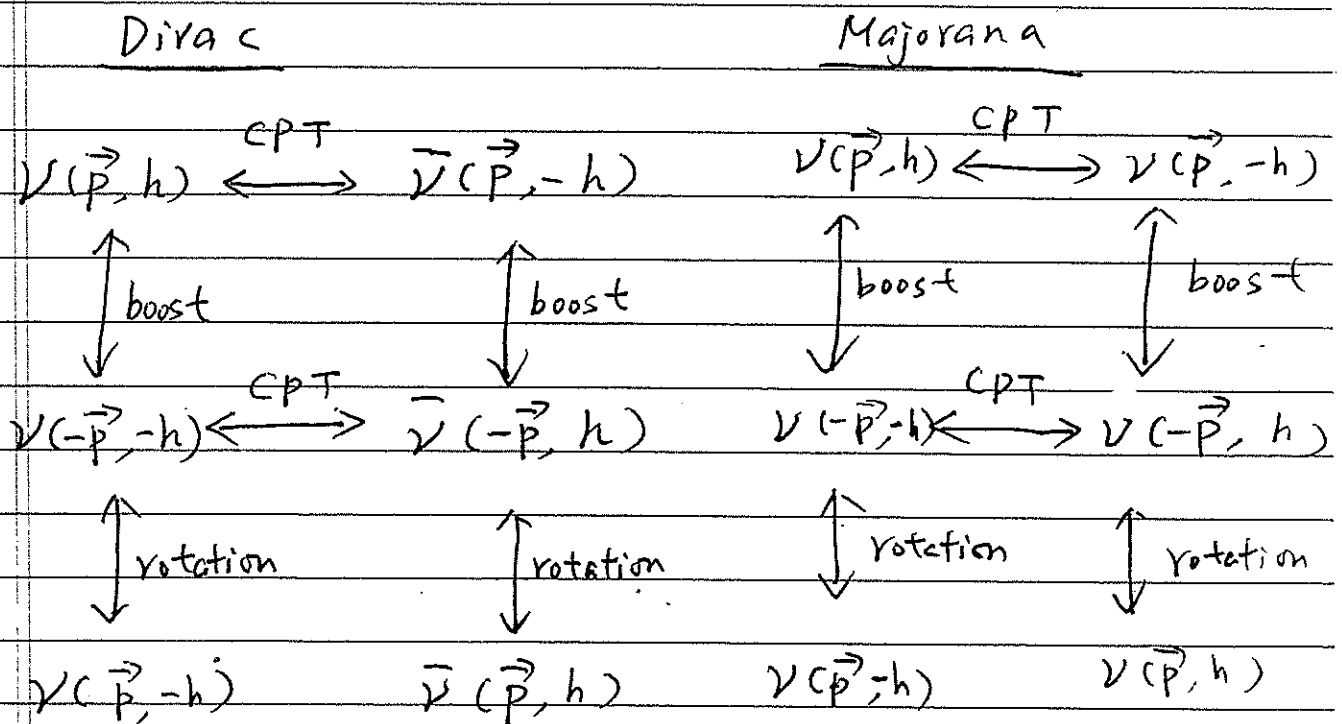 Dirac Majorana
CPT CPT
ν(p⃗, h) ⟷ ν̄(p⃗, -h) ν(p⃗, h) ⟷ ν(p⃗, -h)
boost boost boost boost
CPT CPT
ν(-p⃗, -h) ⟷ ν̄(-p⃗, h) ν(-p⃗, -h) ⟷ ν(-p⃗, h)
rotation rotation rotation rotation
ν(p⃗, -h) ν̄(p⃗, h) ν(p⃗, -h) ν(p⃗, h)